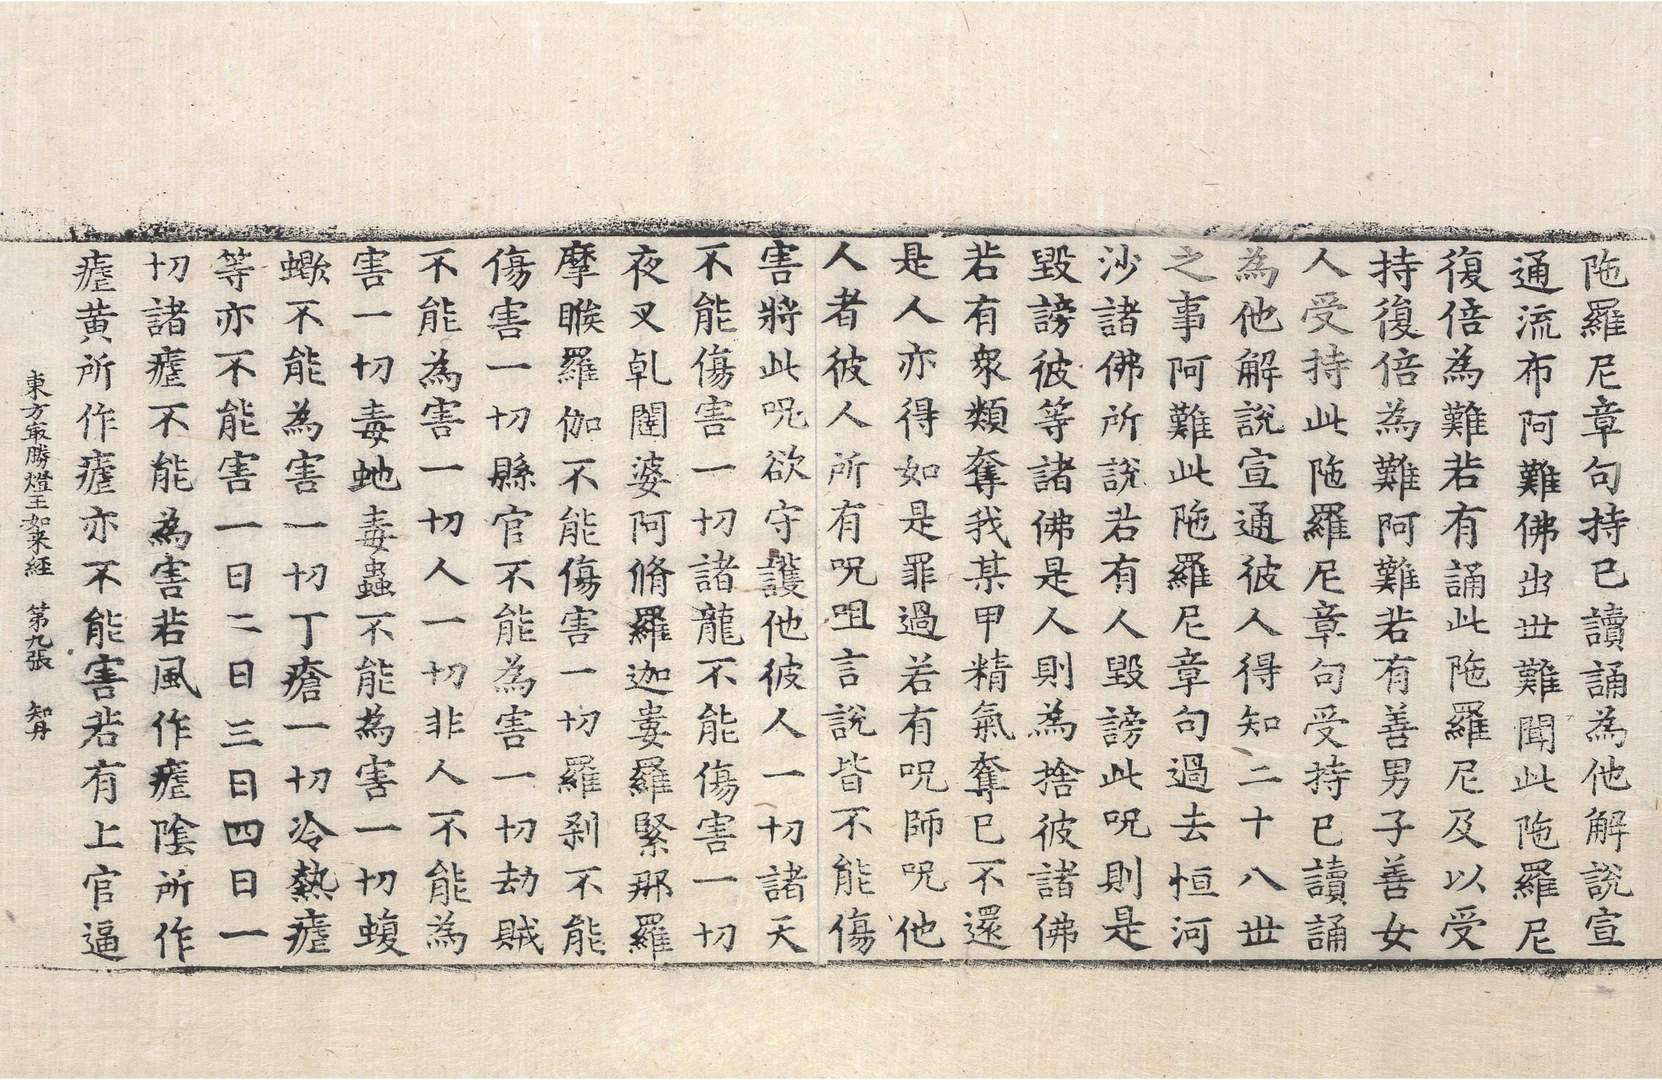 陁羅尼章句持已讀誦為他解說宣
通流布阿難佛出世難聞此陁羅尼
復倍為難若有誦此陁羅尼及以受
持復倍為難阿難若有善男子善女
人受持此陁羅尼章句受持已讀誦
為他解說宣通彼人得知二十八世
之事阿難此陁羅尼章句過去恒河
沙諸佛所說若有人毀謗此呪則是
毀謗彼等諸佛是人則為捨彼諸佛
若有衆類奪我某甲精氣奪已不還
是人亦得如是罪過若有呪師呪他
人者彼人所有呪咀言說皆不能傷
害將此呪欲守護他彼人一切諸天
不能傷害一切諸龍不能傷害一切
夜叉乹闥婆阿脩羅迦婁羅緊那羅
摩睺羅伽不能傷害一切羅剎不能
傷害一切縣官不能為害一切劫賊
不能為害一切人一切非人不能為
害一切毒虵毒蟲不能為害一切蝮
蠍不能為害一切丁瘡一切冷熱瘧
等亦不能害一日二日三日四日一
切諸瘧不能為害若風作瘧陰所作
瘧黃所作瘧亦不能害若有上官逼
東方㝡勝燈王如来経 第九張 知丹